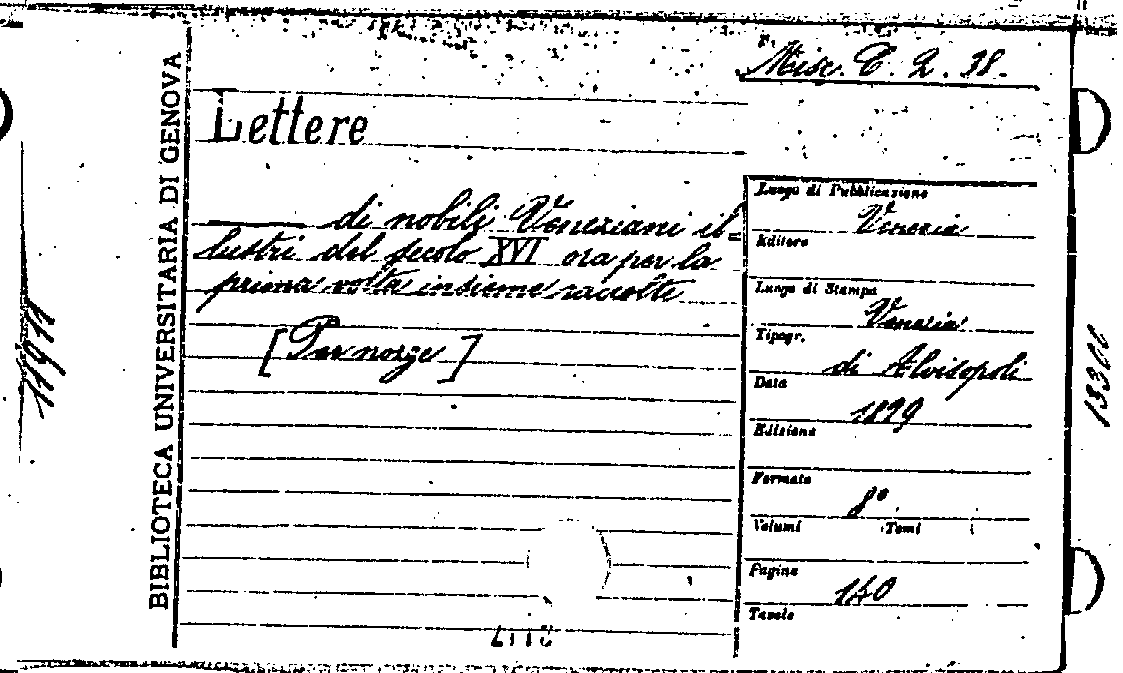 BIBLIOTECA UNIVERSITARIA DI GENOVA
Misc. C. 2. 38.
Lettere
di nobili Veneziani il=
lustri del secolo XVI ora per la
prima volta insieme raccolte
[Per nozze]
Luogo di Pubblicazione
Venezia
Editore
Luogo di Stampa
Venezia
Tipogr.
di Alvisopoli
Data
1829
Edizione
Formato
8°
Volumi Tomi
Pagine
140
Tavole